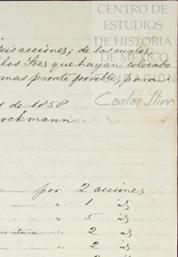 CENTRO DE
ESTUDIOS
DE HISTORIA
DE MÉXICO
Carlos Slim
acciones; de las cuales
los Sres que hayan colocado
mas pronto posible, para
de 1858
ockmann.
por 2 acciones
" 1 id
" 5 id
" 2 id
" 2 id